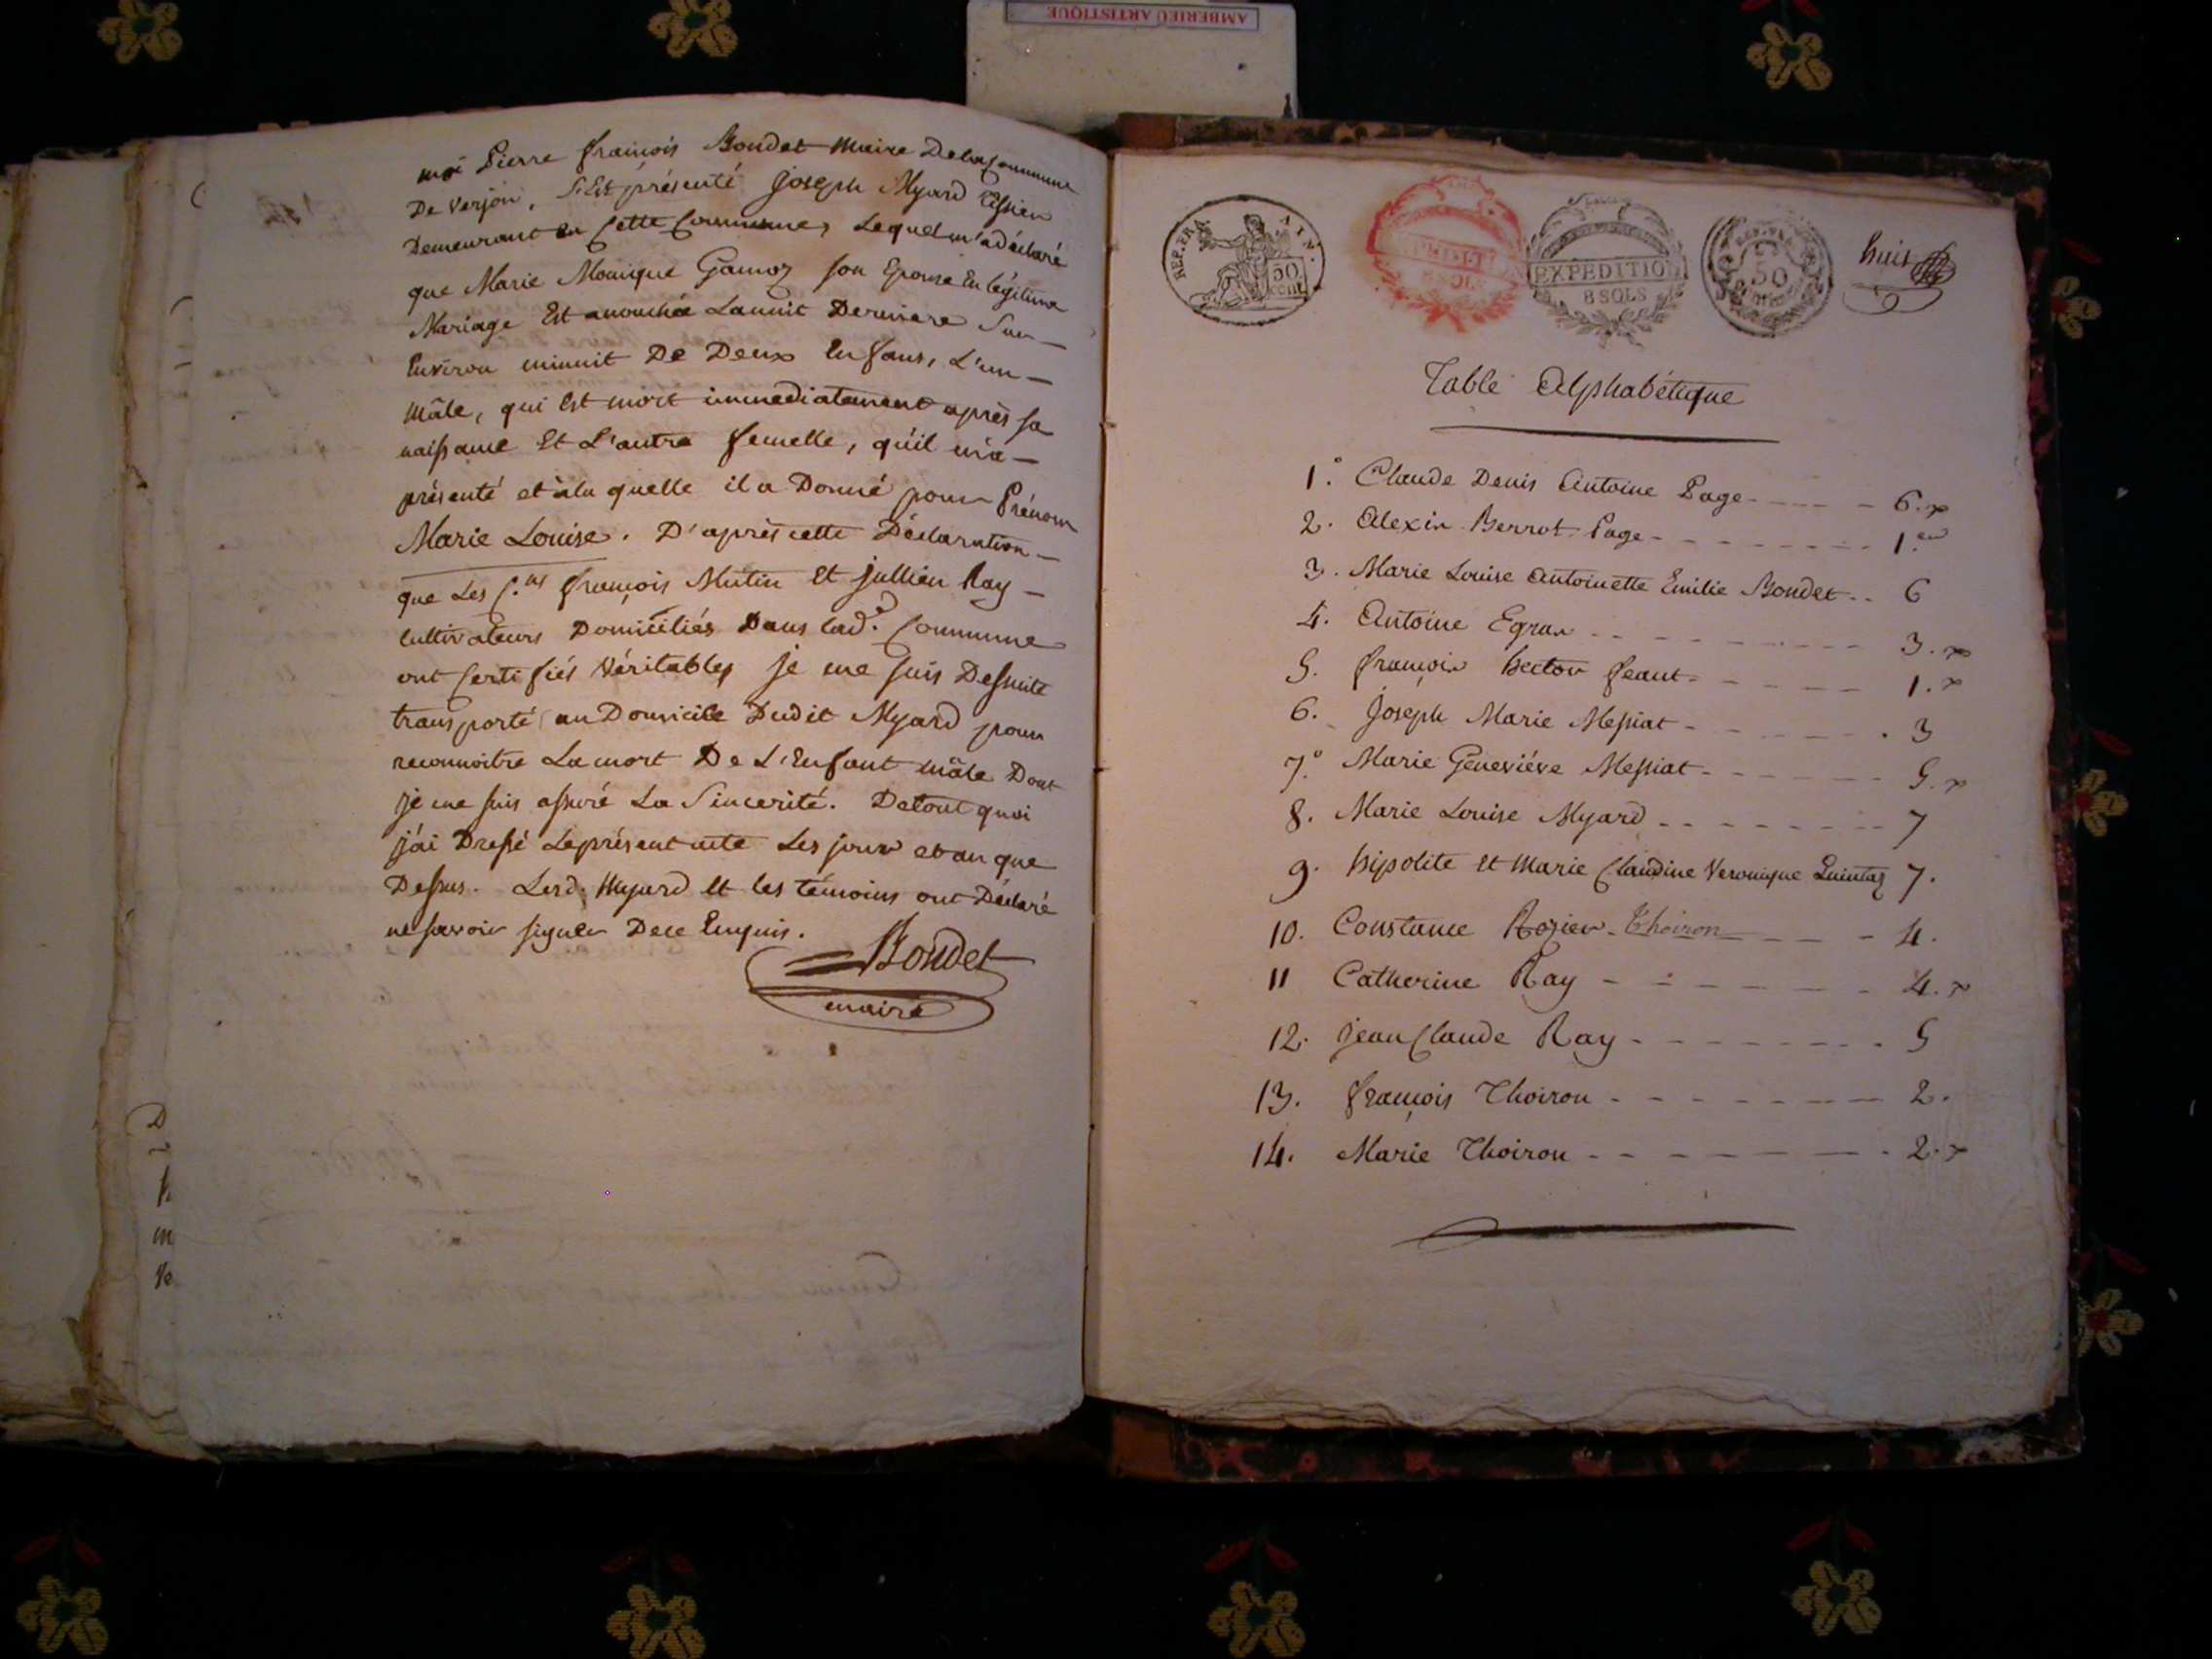 AMBERIEU ARTISTIQUE
moi Pierre françois Bondet Maire De la Commune
De Verjon, S'Est présenté joseph Myard Tissier
Demeurant en Cette Commune, Lequel m'a déclaré
que Marie Monique Gamoz son Epouse En légitime
Mariage Est accouchée La nuit Derniere Sur
Environ minuit De Deux Enfans, L'un
Mâle, qui Est mort immediatement après sa
naissance Et L'autre femelle, qu'il m'a
présenté et à la quelle il a Donné pour Prénom
Marie Louise. D'après cette Déclaration
que Les C.ens françois Mutin Et jullien Ray
Cultivateurs Domiciliés Dans lad.e Commune
ont Certifiés Véritables je me suis De suite
transporté au Domicile Dudit Myard pour
reconnoitre La mort De L'Enfant mâle Dont
je me suis assuré La Sincerité. De tout quoi
j'ai Dressé Le présent acte Les jour et an que
Dessus. Lesd. Myard Et les témoins ont Déclaré
ne savoir signer De ce Enquis.
Bondet
maire
REP. FRA. AIN.
50 cent.
EXPEDITION
8 SOLS
EXPEDITION
8 SOLS
REP. FRA.
50
huit
Table Alphabétique
1.° Claude Denis Antoine Page 6.
2. Alexin Berrot Page 1.er
3. Marie Louise Antoinette Emilie Bondet 6
4. Antoine Egraz 3.
5. françois hector feaut 1.
6. Joseph Marie Messiat 3
7.° Marie Geneviéve Messiat 5.
8. Marie Louise Myard 7
9. hipolite Et Marie Claudine Veronique Quintaz 7.
10. Constance Rozier Thoiron 4.
11 Catherine Ray 4.
12. jean Claude Ray 5
13. françois Thoiron 2.
14. Marie Thoiron 2.